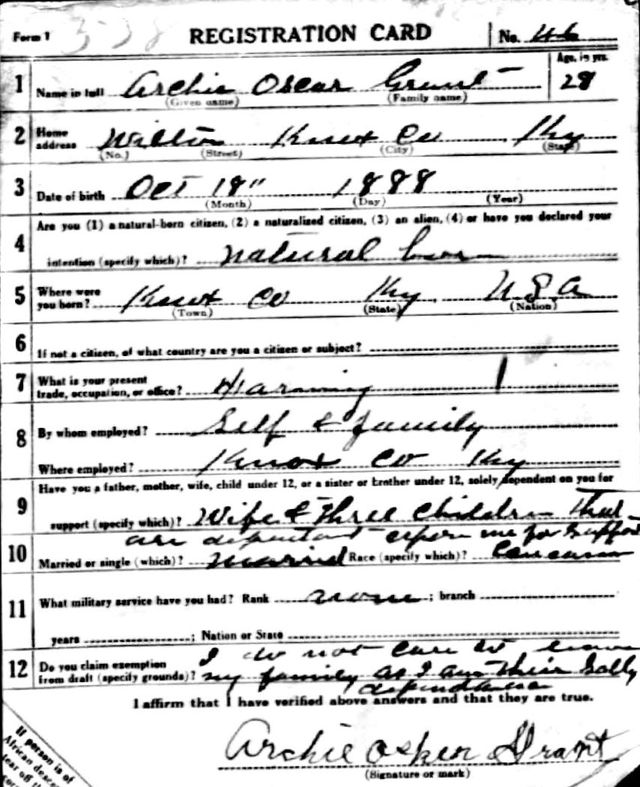 Form 1 REGISTRATION CARD No. 46
Age, in yrs.
1 Name in full Archie Oscar Grant 28
(Given name) (Family name)
2 Home address Wilton Knox Co Ky
(No.) (Street) (City) (State)
3 Date of birth Oct 18" 1888
(Month) (Day) (Year)
Are you (1) a natural-born citizen, (2) a naturalized citizen, (3) an alien, (4) or have you declared your
4 intention (specify which)? natural born
5 Where were you born? Knox Co Ky, U S A
(Town) (State) (Nation)
6 If not a citizen, of what country are you a citizen or subject?
7 What is your present trade, occupation, or office? Harming 1
8 By whom employed? Self & family
Where employed? Knox Co Ky
9 Have you a father, mother, wife, child under 12, or a sister or brother under 12, solely dependent on you for
support (specify which)? Wife & three children that
are dependant upon me for support
10 Married or single (which)? married Race (specify which)?
11 What military service have you had? Rank none; branch
years ; Nation or State
I do not care to leave
12 Do you claim exemption from draft (specify grounds)? my family as I am their Solly
I affirm that I have verified above answers and that they are true.
Archie Osker Grant
(Signature or mark)
If person is of
African desce
tear off th